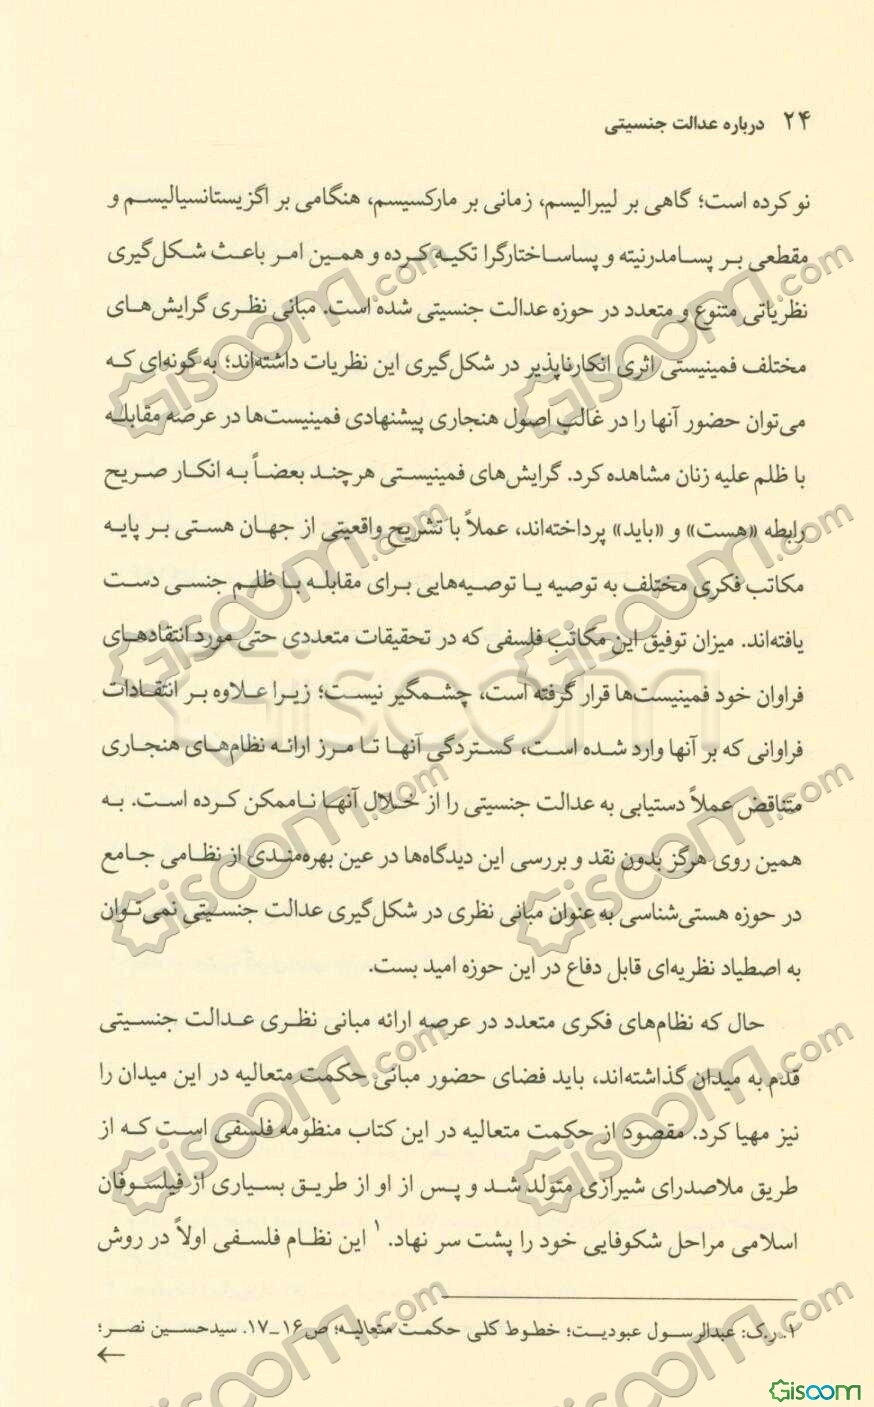 ۲۴ درباره عدالت جنسیتی
نو کرده است؛ گاهی بر لیبرالیسم، زمانی بر مارکسیسم، هنگامی بر اگزیستانسیالیسم و
مقطعی بر پسامدرنیته و پساساختارگرا تکیه کرده و همین امر باعث شکل‌گیری
نظریاتی متنوع و متعدد در حوزه عدالت جنسیتی شده است. مبانی نظری گرایش‌های
مختلف فمینیستی اثری انکارناپذیر در شکل‌گیری این نظریات داشته‌اند؛ به گونه‌ای که
می‌توان حضور آنها را در غالب اصول هنجاری پیشنهادی فمینیست‌ها در عرصه مقابله
با ظلم علیه زنان مشاهده کرد. گرایش‌های فمینیستی هرچند بعضاً به انکار صریح
رابطه «هست» و «باید» پرداخته‌اند، عملاً با تشریح واقعیتی از جهان هستی بر پایه
مکاتب فکری مختلف به توصیه یا توصیه‌هایی برای مقابله با ظلم جنسی دست
یافته‌اند. میزان توفیق این مکاتب فلسفی که در تحقیقات متعددی حتی مورد انتقادهای
فراوان خود فمینیست‌ها قرار گرفته است، چشمگیر نیست؛ زیرا علاوه بر انتقادات
فراوانی که بر آنها وارد شده است، گستردگی آنها تا مرز ارائه نظام‌های هنجاری
متناقض عملاً دستیابی به عدالت جنسیتی را از خلال آنها ناممکن کرده است. به
همین روی هرگز بدون نقد و بررسی این دیدگاه‌ها در عین بهره‌مندی از نظامی جامع
در حوزه هستی‌شناسی به عنوان مبانی نظری در شکل‌گیری عدالت جنسیتی نمی‌توان
به اصطیاد نظریه‌ای قابل دفاع در این حوزه امید بست.
حال که نظام‌های فکری متعدد در عرصه ارائه مبانی نظری عدالت جنسیتی
قدم به میدان گذاشته‌اند، باید فضای حضور مبانی حکمت متعالیه در این میدان را
نیز مهیا کرد. مقصود از حکمت متعالیه در این کتاب منظومه فلسفی است که از
طریق ملاصدرای شیرازی متولد شد و پس از او از طریق بسیاری از فیلسوفان
اسلامی مراحل شکوفایی خود را پشت سر نهاد.۱ این نظام فلسفی اولاً در روش
۱. ر.ک: عبدالرسول عبودیت؛ خطوط کلی حکمت متعالیه؛ ص۱۶_۱۷. سیدحسین نصر؛
←
Gisoom